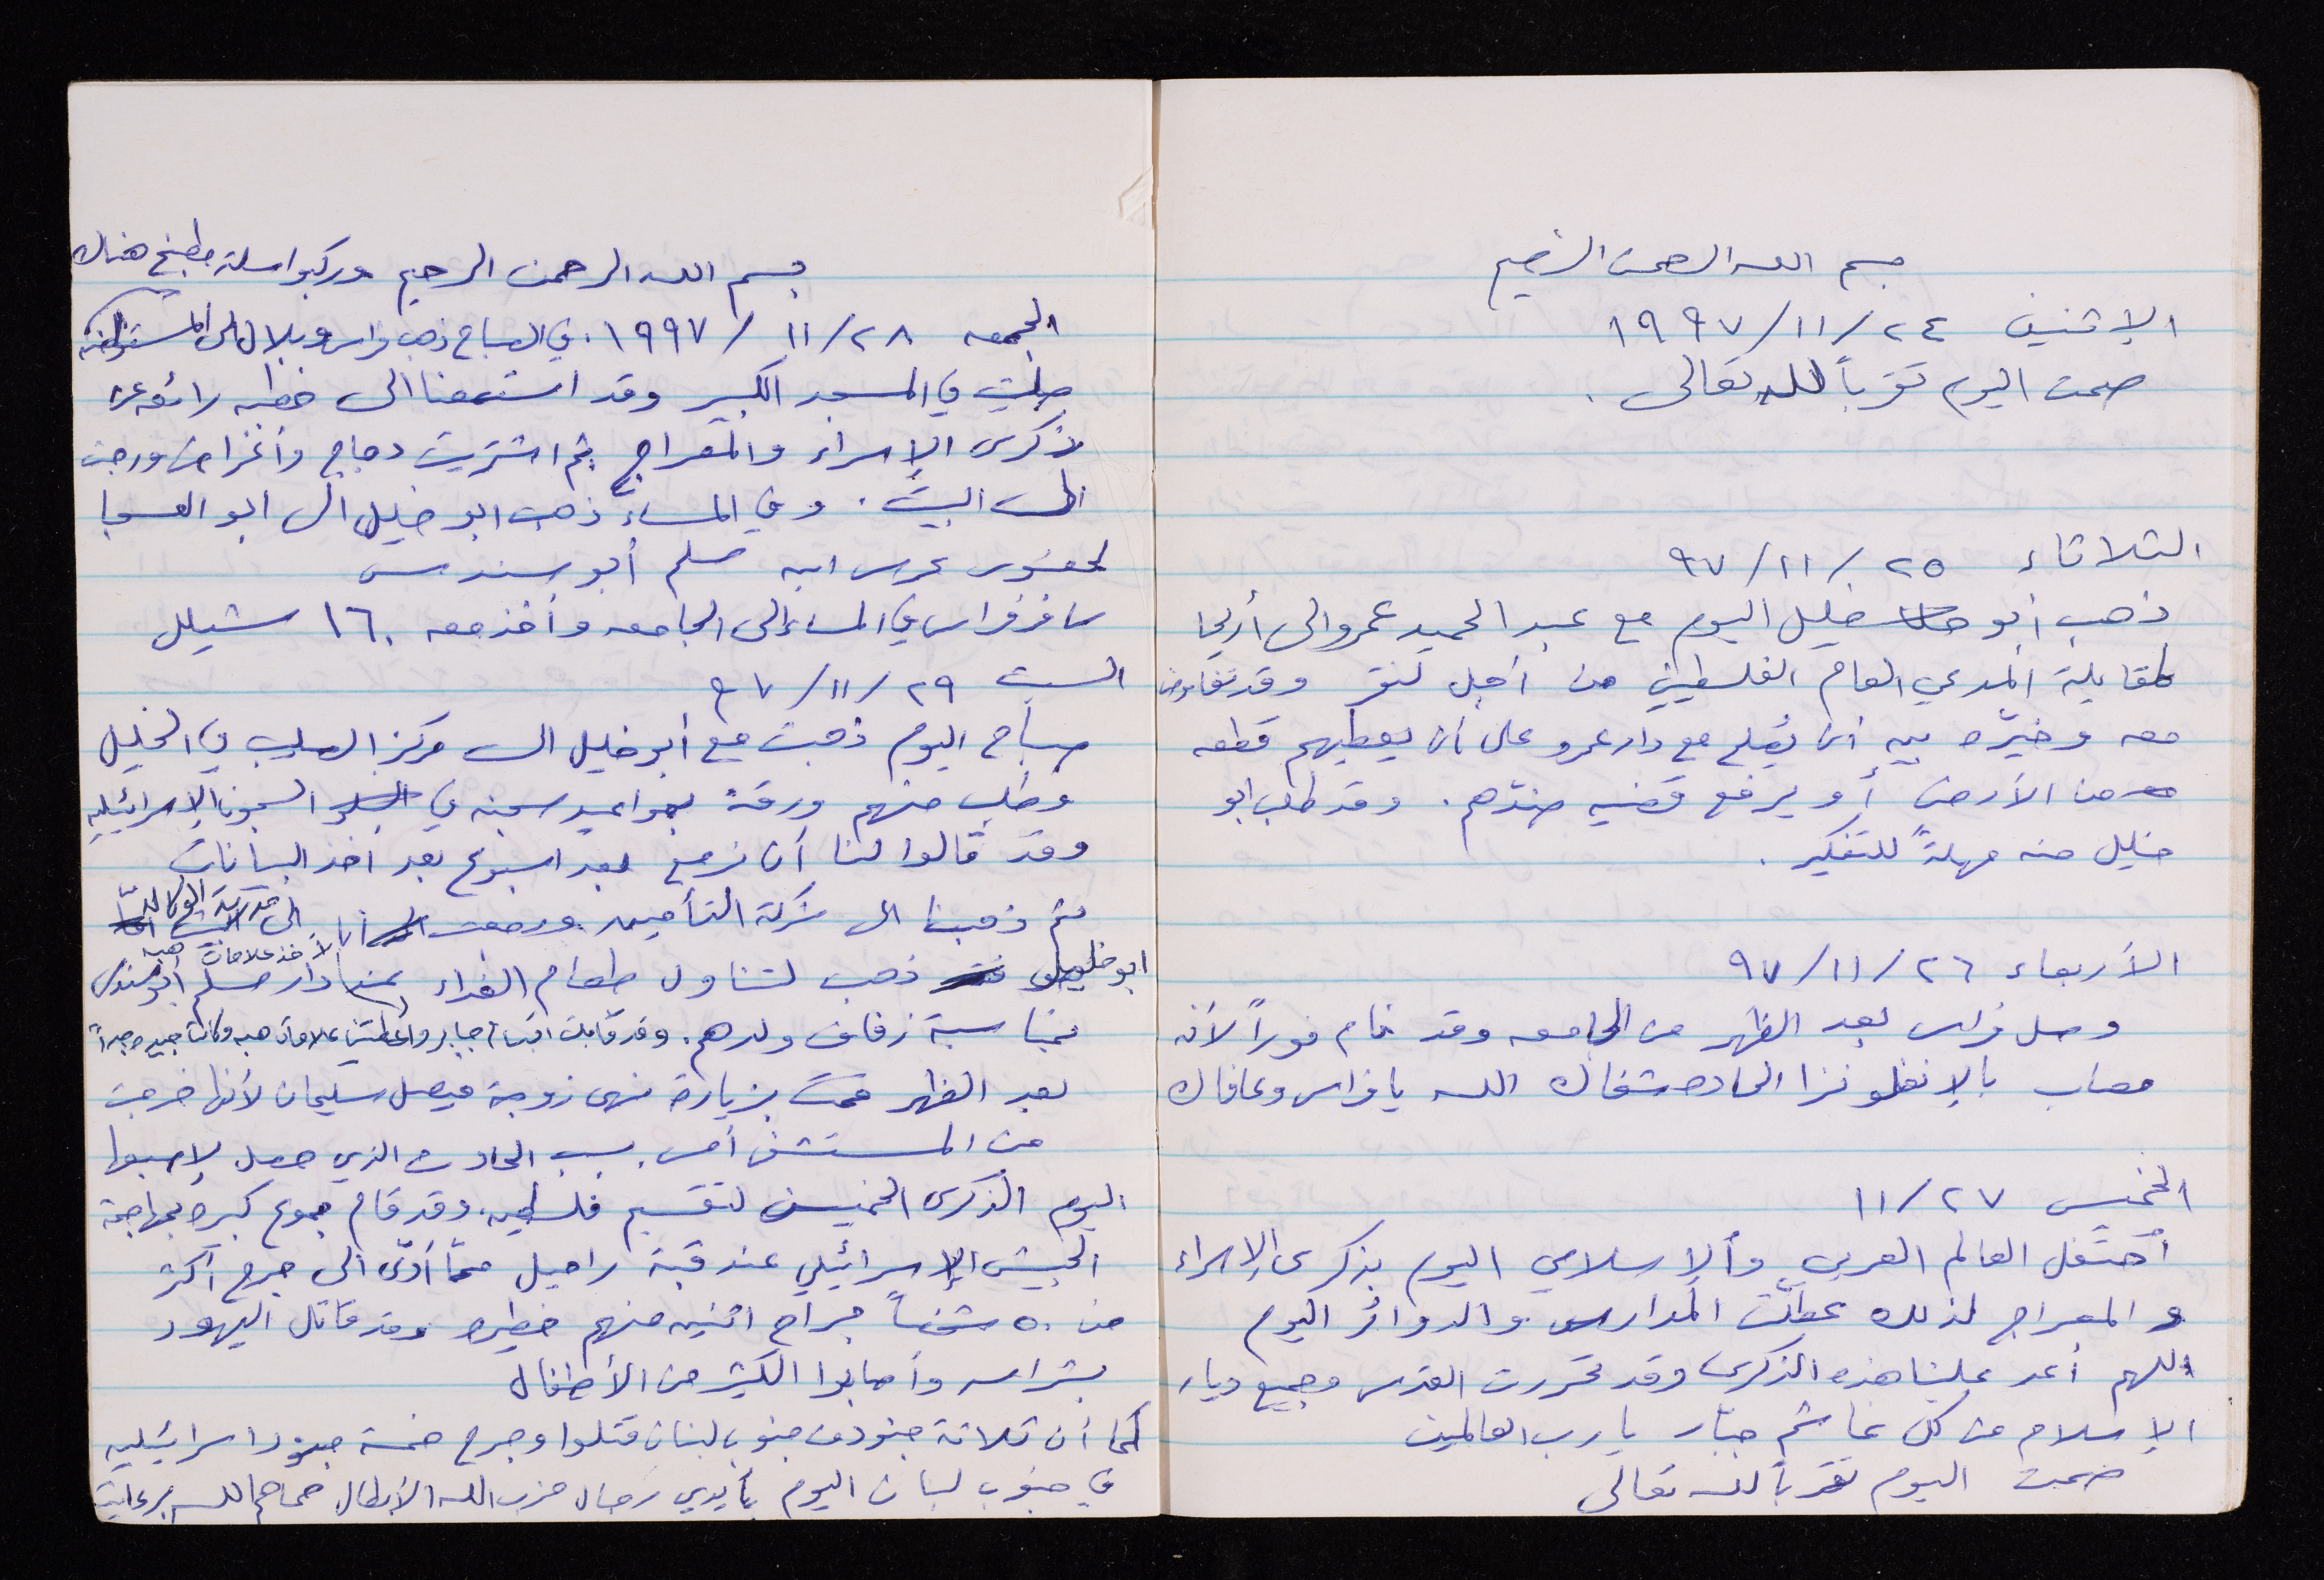 بسم الله الرحمن الرحيم
الإثنين ٢٤/١١/١٩٩٧
صمت اليوم تقرباً لله تعالى .
الثلاثاء ٢٥/١١/٩٧
ذهب أبو خليل اليوم مع عبد الحميد عمرو الى أريحا
لمقابلة المدعي العام الفلسطيني من أجل وقد تفاوض
معه وخيّره بين أن يُصلح مع دار عمرو على أن يعطيهم قطعه
من الأرض أو يرفع قضيه ضدّهم . وقد طلب ابو
خليل منه مهلةً للتفكير .
الأربعاء ٢٦/١١/٩٧
وصل فراس بعد الظهر من الجامعه وقد نام فوراً لأنه
مصاب بالإنفلونزا الحاده شفاك الله يا فراس وعافاك
الخميس ٢٧/١١
أحتفل العالم العربي وألإسلامي اليوم بذكرى الإسراء
و المعراج لذلك عطلت المدارس والدوائر اليوم
اللهم أعد علينا هذه الذكرى وقد تحررت القدس وجميع ديار
الإسلام من كل غاشم جبّار يا رب العالمين
صمت اليوم تقرباً لله تعالى
بسم الله الرحمن الرحيم وركبوا سلة مطبخ هناك
الجمعه ٢٨/١١/١٩٩٧ . في الصباح ذهب فراس وبلال الى المستوطنه
صليت في المسجد الكبير وقد استمعنا الى خطبه رائعه عن
ذكرى الإسراء والمعراج ثم اشتريت دجاج وأغراض ورجعت
الى البيت . وفي المساء ذهب ابو خليل الى ابو العسجا
لحضور عرس ابنه مسلم أبو سندس
سافر فراس في المساء إلى الجامعه وأخذ معه ١٦٠ شيكل
السبت ٢٩/١١/٩٧
صباح اليوم ذهبت مع أبو خليل الى مركز الصليب في الخليل
وطلب منهم ورقة بمواعيد سجنه في السجون الإسرائيليه
وقد قالوا لنا أن نرجع بعد اسبوع بعد اخذ البيانات
ثم ذهبنا الى شركة التأمين ورجعت أنا الى مدرسة الوكالة
لأخذ علامات هبه
ابو خليل ذهب لتناول طعام الغداء عند دار مسلم أبو سندس
بمناسبة زفاف ولدهم . وقد قابلت ابتسام جابر واعطتني علامات هبه وكانت جيده جداً
بعد الظهر قمت بزيارة نهى زوجة فيصل سليمان لأنها خرجت
من المستشفى أمس بسبب الحادث الذي حصل لإصبعها
اليوم الذكرى الخمسين لتقسيم فلسطين وقد قام جموع كبيره بمهاجمة
الجيش الإسرائيلي عند قبة راحيل ممّا أدّى الى جرح أكثر
من ٥٠ شخصاً جراح اثنين منهم خطيره وقد قاتل اليهود
بشراسه وأصابوا الكثير من الأطفال
كما أن ثلاثة جنود من جنوب لبنان قتلوا وجرح خمسة جنود اسرائيليين
في جنوب لبنان اليوم بأيدي رجال حزب الله الأبطال حماهم الله برعايته